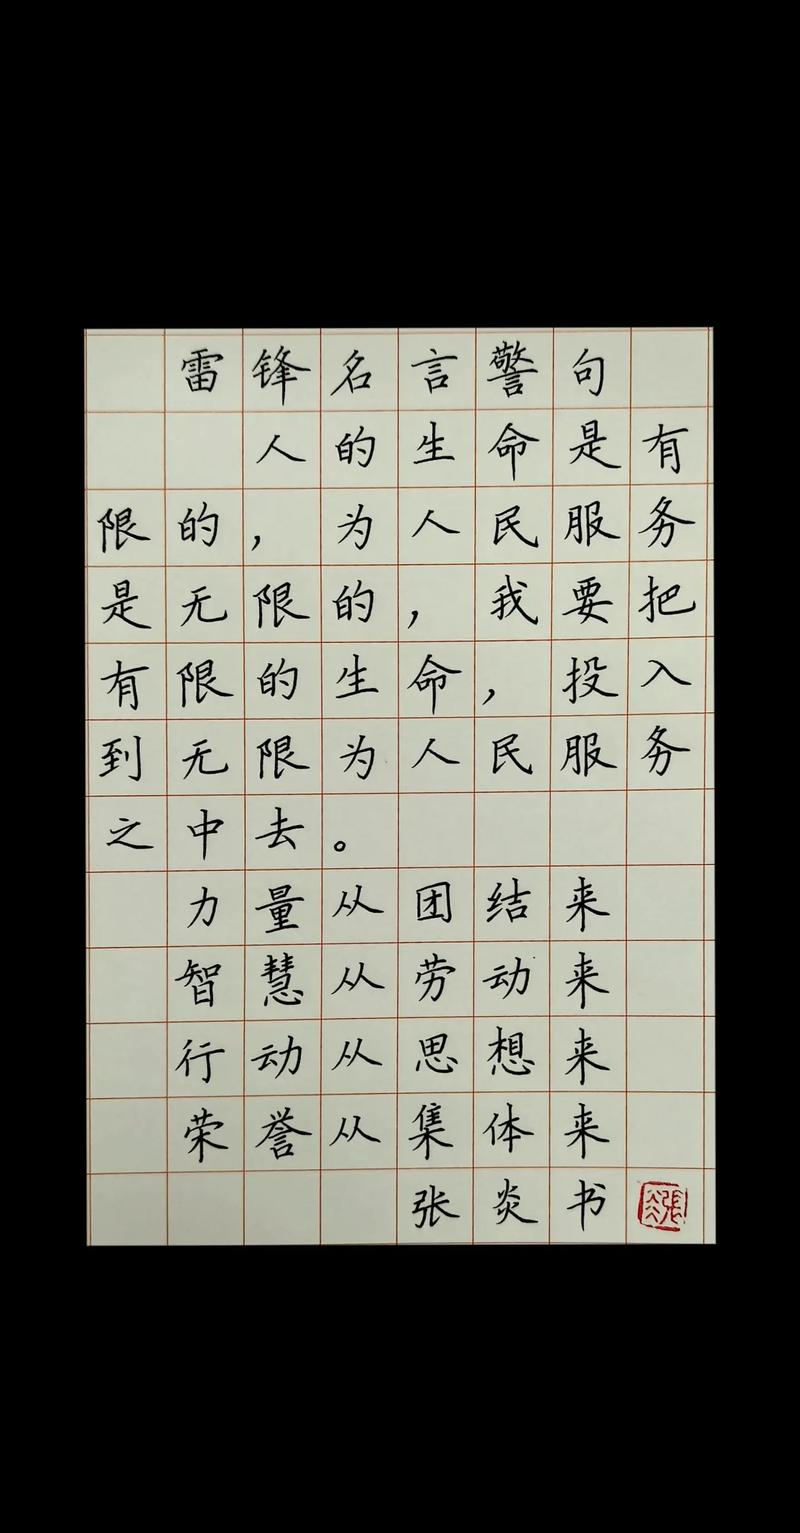 雷锋名言警句
人的生命是有
限的，为人民服务
是无限的，我要把
有限的生命，投入
到无限为人民服务
之中去。
力量从团结来
智慧从劳动来
行动从思想来
荣誉从集体来
张炎书
張炎